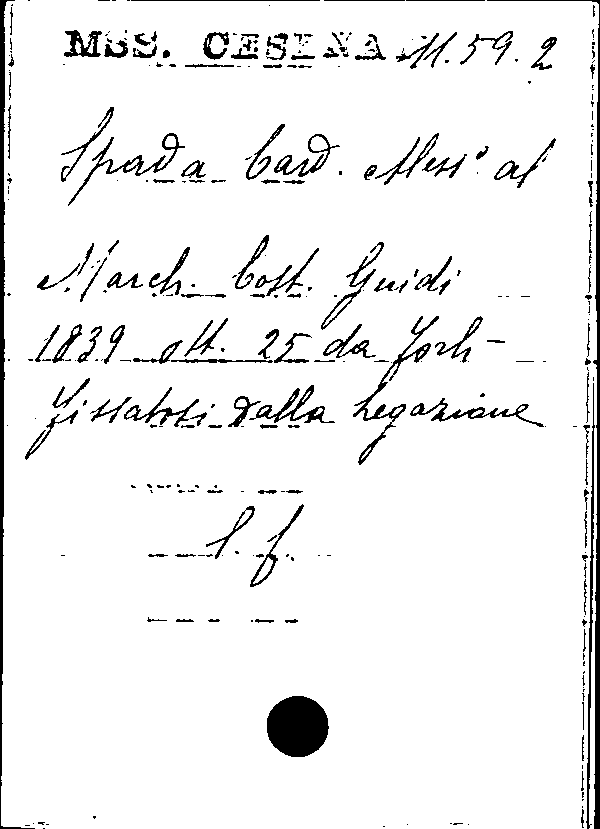 MSS. CESENA 11.59.2
Spada Card. Aless° al
March. Cost. Guidi
1839 ott. 25 da Forlì -
Fissatosi dalla Legazione
l. f.